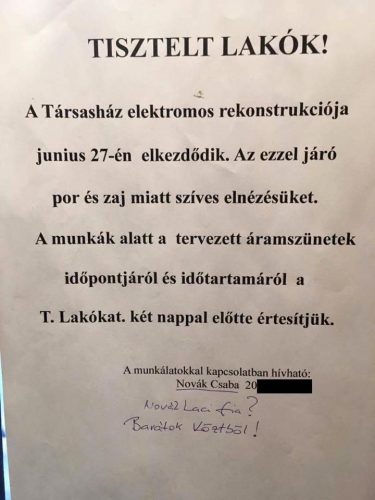 TISZTELT LAKÓK!
A Társasház elektromos rekonstrukciója
junius 27-én elkezdődik. Az ezzel járó
por és zaj miatt szíves elnézésüket.
A munkák alatt a tervezett áramszünetek
időpontjáról és időtartamáról a
T. Lakókat. két nappal előtte értesítjük.
A munkálatokkal kapcsolatban hívható:
Novák Csaba 20
Novák Laci fia?
Barátok Köztből!